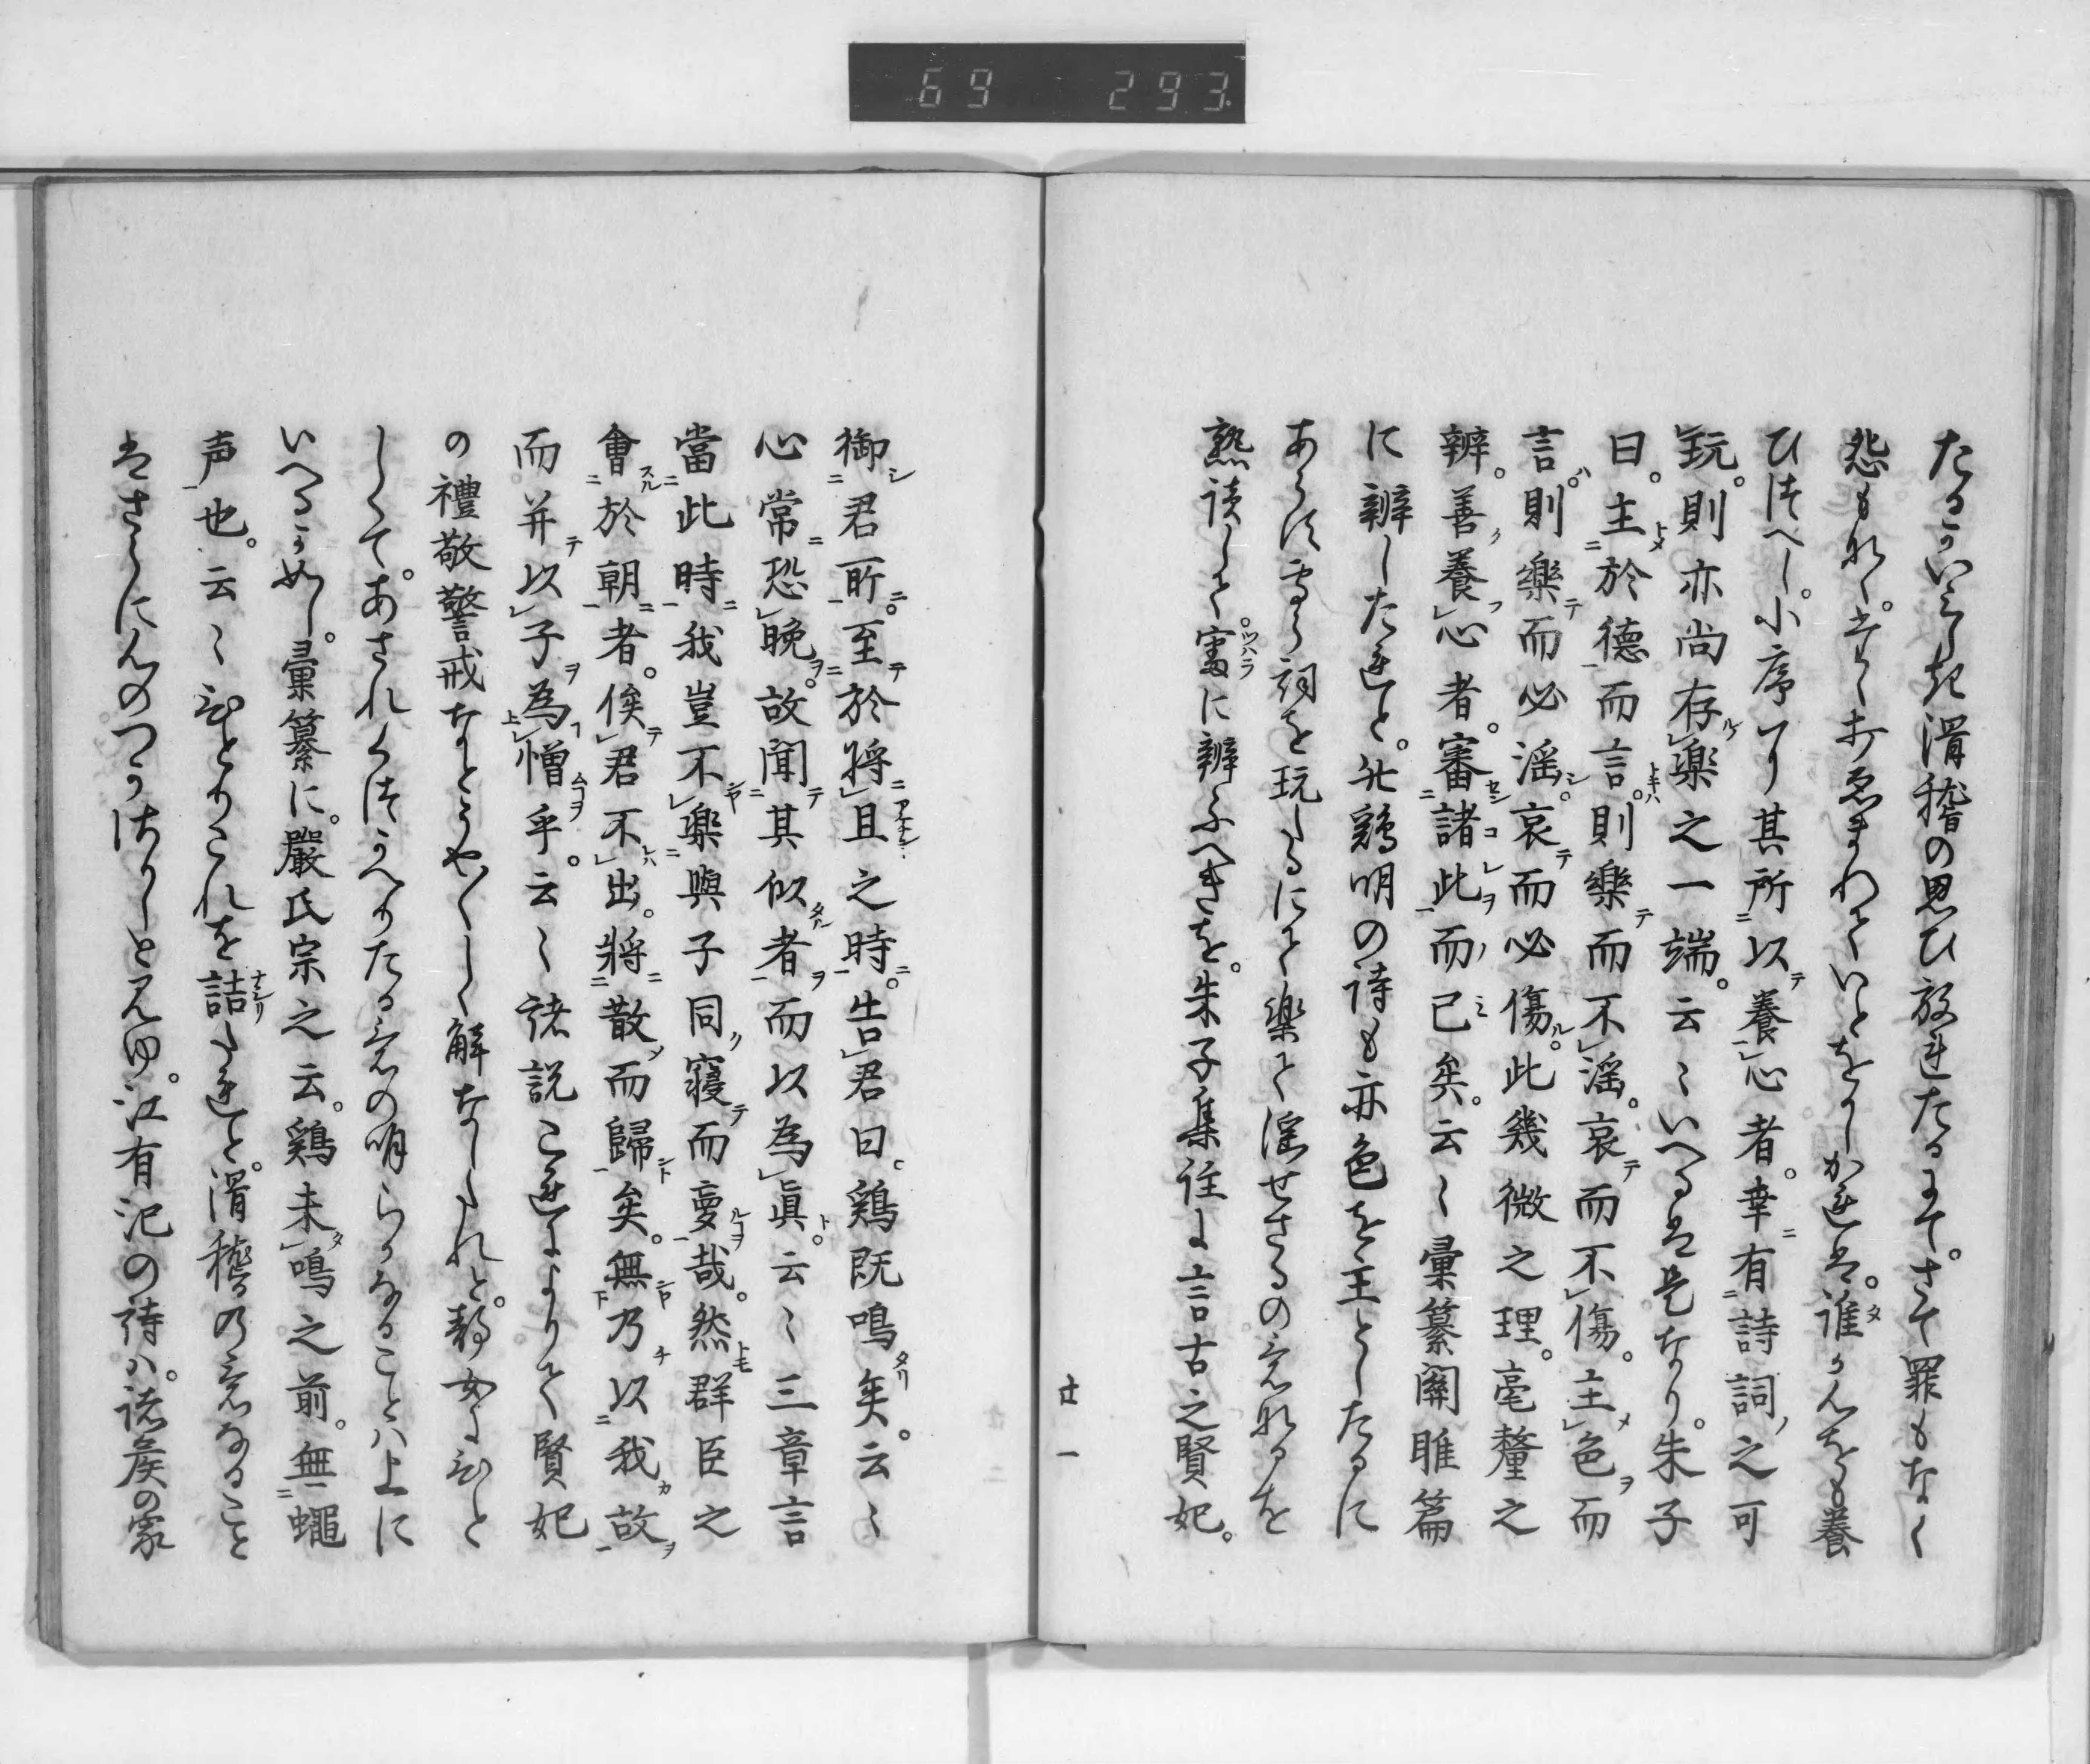 69 293
たるかいミしき滑稽の思ひ放れたるまて。さて罪もなく
怨もなく。たゝ打ゑまわれていとをしか連は。誰かんをも養
ひ徒へし。小序ヨリ其所以養心者。幸有詩詞之可
玩。則亦尚存樂之一端。云〻いへるは是なり。朱子
曰。主於德而言。則樂而不淫。哀而不傷。主色而
言。則樂而必淫。哀而必傷。此幾微之理。毫釐之
辨。善養心者。審諸此而已矣。云〻彙纂關雎篇
に辨したれと。此鶏明の詩も亦色を主としたるに
あらす。たゝ詞を玩ふるにて樂て淫せさるの意なるを
熟読して。審に辨ふへきを。朱子集註に言古之賢妃。
廿一
御君所。至於將且之時。告君曰。鶏既鳴矣。云〻
心常恐晩。故聞其似者而以為眞。云〻三章言
當此時我豈不樂與子同寢而夢哉。然群臣之
會於朝者。俟君不出。將散而歸矣。無乃以我故
而并以子為憎乎。云〻諸説これによりて賢妃
の禮敬警戒なとゝやくしく解なしたれと。静女にひと
しくて。あされく徒かへりたる意の明らかなることハ上に
いへるか如し。彙纂に。嚴氏宗之云。鶏未鳴之前。無蠅
声也。云〻ひとりこれを詰たれと。滑稽の意なること
はさらにんのつかはかしと見ゆ。江有汜の詩ハ。諸矦の家